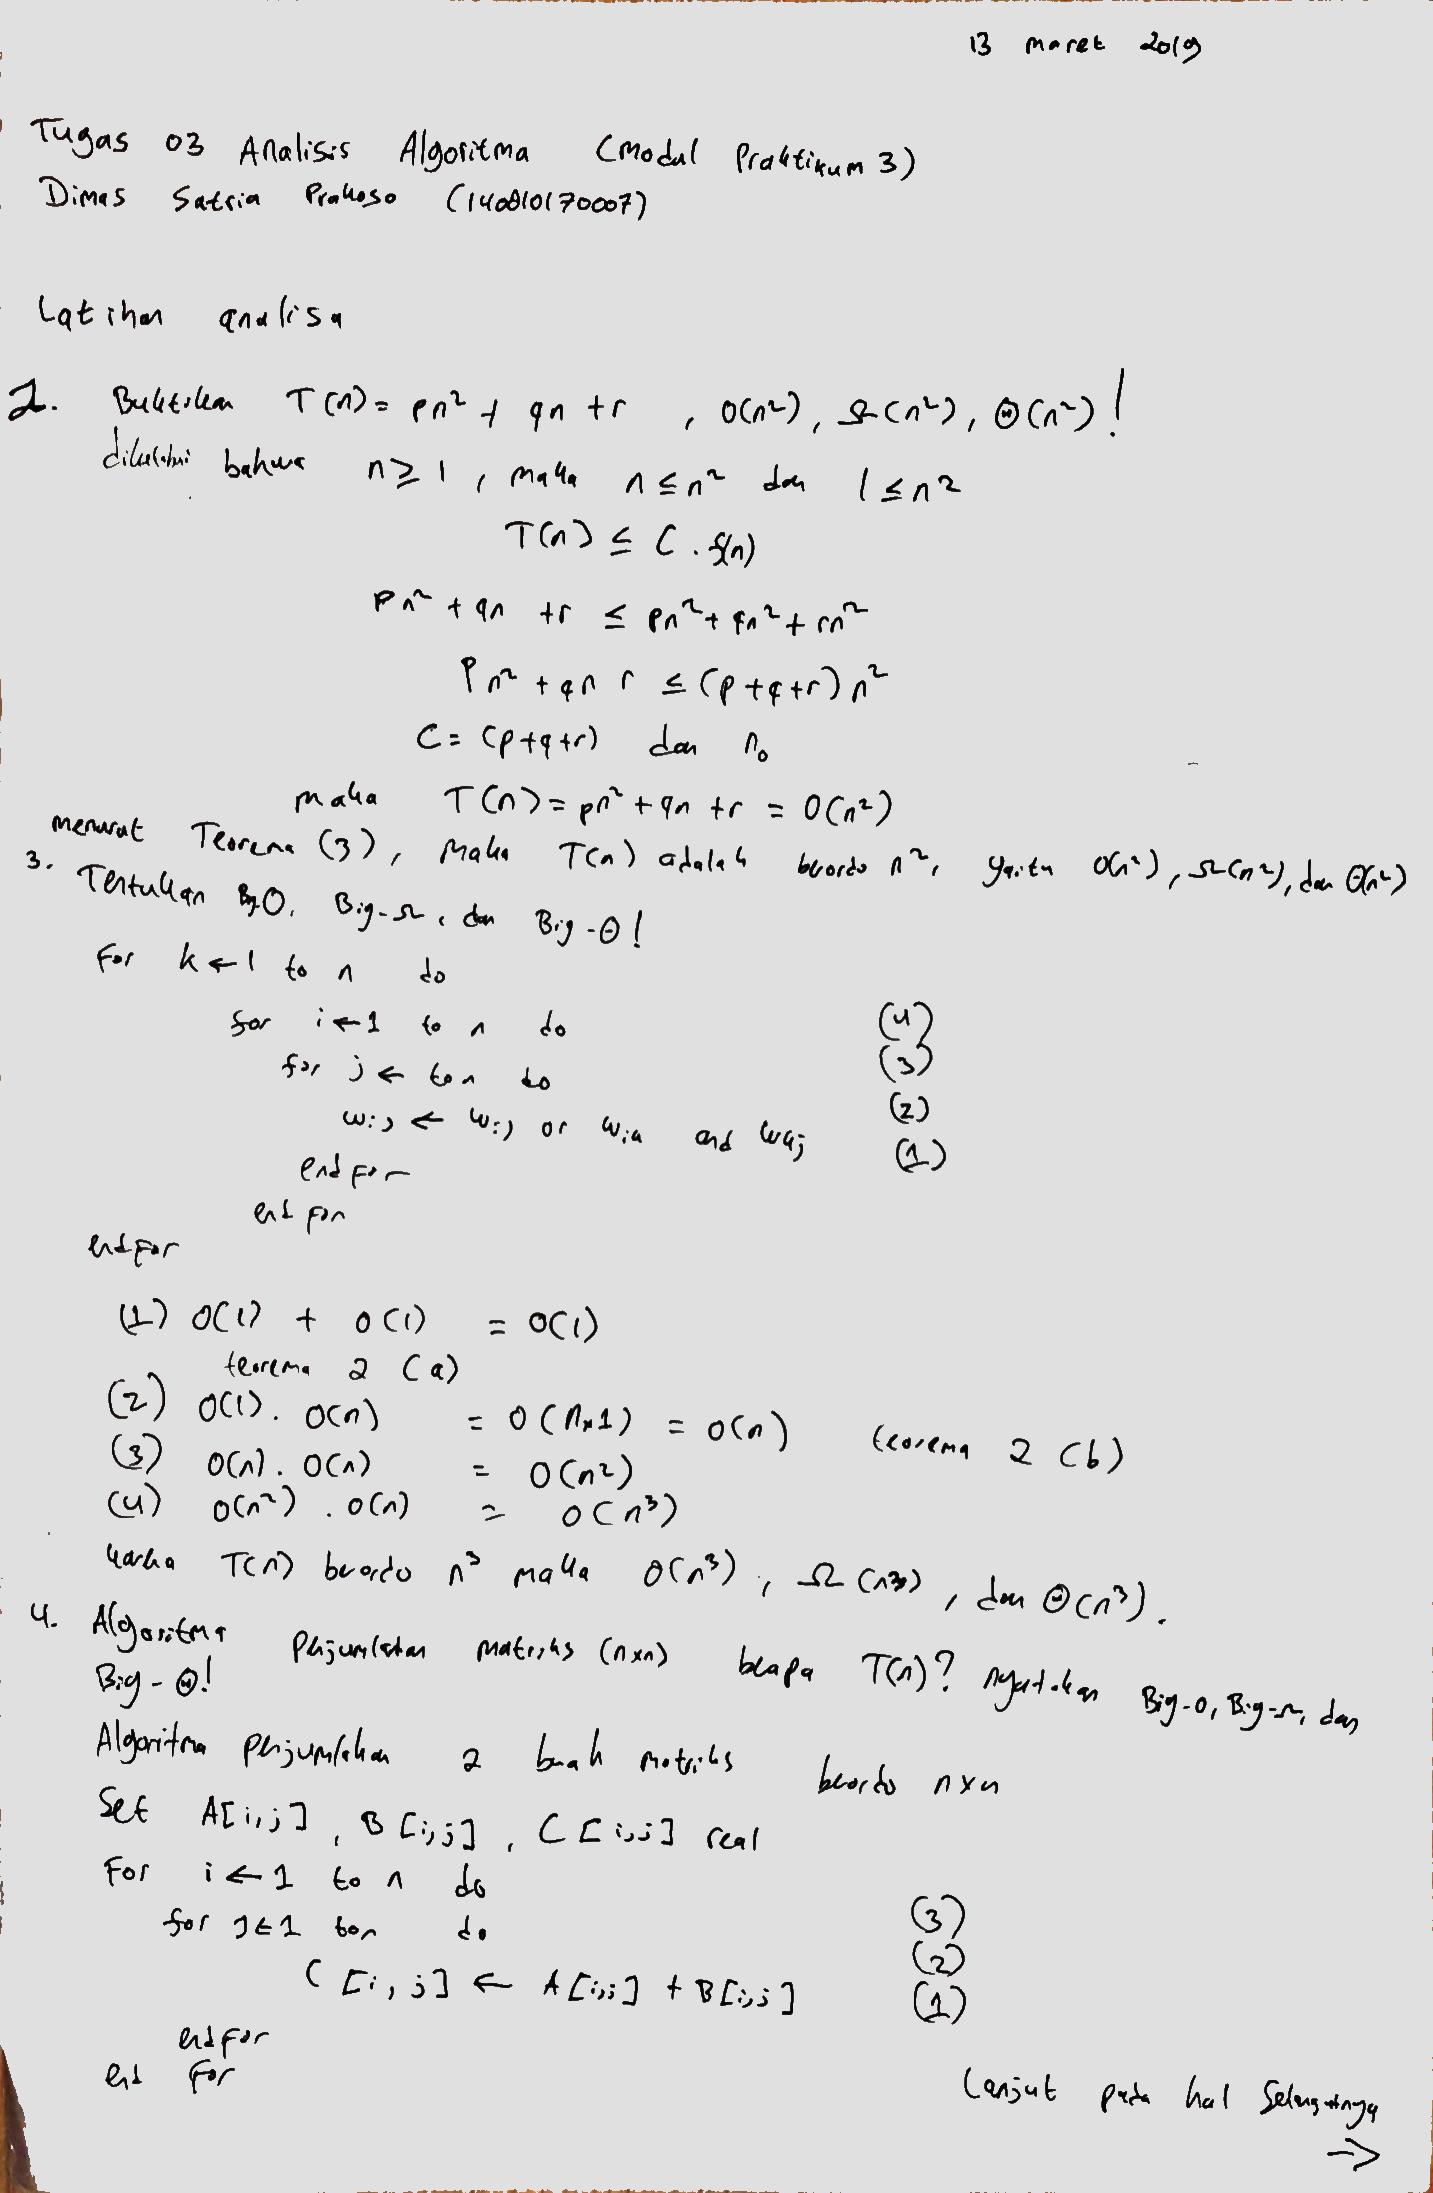 13 maret 2019
Tugas 03 Analisis Algoritma (Modul Praktikum 3)
Dimas Satria Prakoso (140810170007)
Latihan analisa
2. Buktikan T(n) = pn² + qn + r , O(n²), Ω(n²), Θ(n²)!
diketahui bahwa n ≥ 1, maka n ≤ n² dan 1 ≤ n²
T(n) ≤ C . f(n)
pn² + qn + r ≤ pn² + qn² + rn²
pn² + qn r ≤ (p+q+r) n²
C = (p+q+r) dan n₀
maka T(n) = pn² + qn + r = O(n²)
menurut Teorema (3), maka T(n) adalah berordo n², yaitu O(n²), Ω(n²), dan Θ(n²)
3. Tentukan Big O, Big-Ω, dan Big-Θ!
For k ← 1 to n do
for i ← 1 to n do (4)
for j ← to n do (3)
wij ← wij or wik and wkj (2)
(1)
end for
end for
end for
(1) O(1) + O(1) = O(1)
teorema 2 (a)
(2) O(1) . O(n) = O(n×1) = O(n) teorema 2 (b)
(3) O(n) . O(n) = O(n²)
(4) O(n²) . O(n) = O(n³)
karna T(n) berordo n³ maka O(n³), Ω(n³), dan Θ(n³).
4. Algoritma Penjumlahan matriks (n×n) berapa T(n)? nyatakan Big-O, Big-Ω, dan
Big-Θ!
Algoritma penjumlahan 2 buah matriks berordo n×n
Set A[i,j], B[i,j], C[i,j] real
For i ← 1 to n do
for j ← 1 to n do (3)
(2)
C[i,j] ← A[i,j] + B[i,j] (1)
end for
end for
Lanjut pada hal Selanjutnya
→